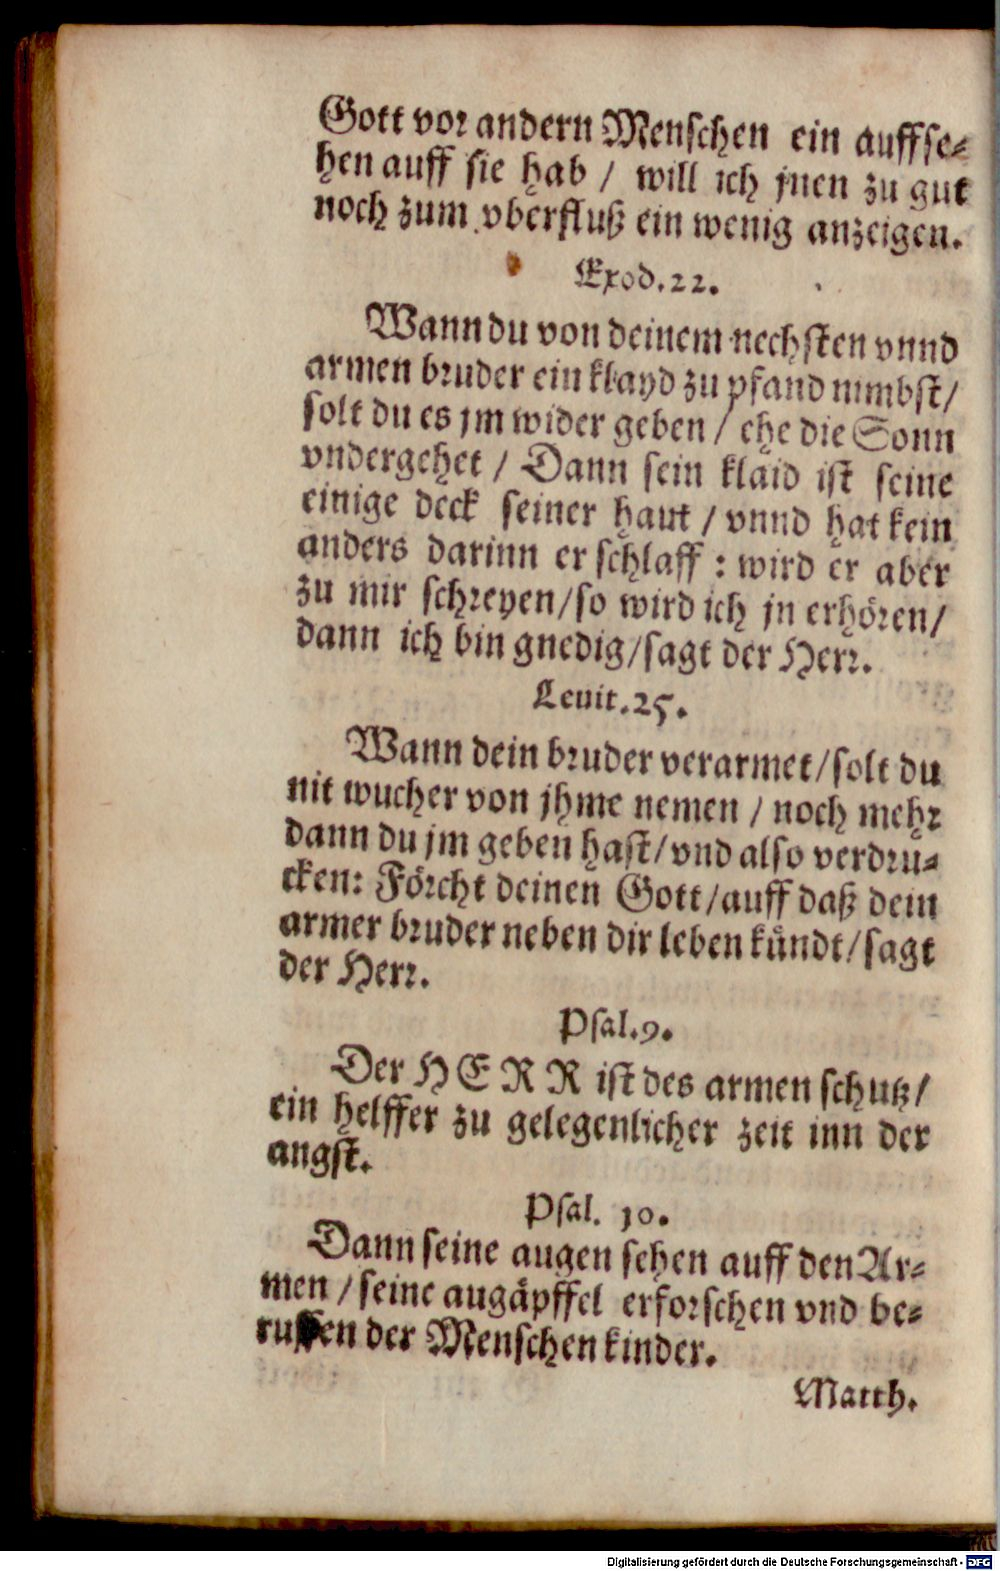 Gott vor andern Menschen ein auffse-
hen auff sie hab / will ich jnen zu gut
noch zum vberfluß ein wenig anzeigen.
Exod. 22.
Wann du von deinem nechsten vnnd
armen bruder ein klayd zu pfand nimbst /
solt du es jm wider geben / ehe die Sonn
vndergehet / Dann sein klaid ist seine
einige deck seiner haut / vnnd hat kein
anders darinn er schlaff : wird er aber
zu mir schreyen / so wird ich jn erhören /
dann ich bin gnedig / sagt der Herr.
Leuit. 25.
Wann dein bruder verarmet / solt du
nit wucher von jhme nemen / noch mehr
dann du jm geben hast / vnd also verdru-
cken: Förcht deinen Gott / auff daß dein
armer bruder neben dir leben kündt / sagt
der Herr.
Psal. 9.
Der HERR ist des armen schutz /
ein helffer zu gelegenlicher zeit inn der
angst.
Psal. 10.
Dann seine augen sehen auff den Ar-
men / seine augäpffel erforschen vnd be-
ruffen der Menschen kinder.
Matth.
Digitalisierung gefördert durch die Deutsche Forschungsgemeinschaft - DFG